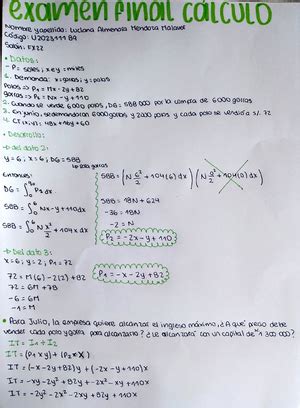 examen final cálculo
Nombre y apellido: Luciana Almendra Mendoza Malaver
Código: U202311189
Salón: FX22
• Datos:
- P= soles, x e y = miles
1. Demanda: x=gorras; y=polos
Polos => P1 = Mx-2y+82
gorras => P2 = Nx-y+110
2. Cuando se vende 6000 polos, DG= 588 000 por la compra de 6000 gorras
3. En junio, se demandaron 6000 gorras y 2000 polos y cada polo se vendió a s/. 72
4. CT(x,y): 48x+16y+60
• Desarrollo:
→ del dato 2:
y=6; x=6; DG=588
→ para gorras
Entonces:
DG = ∫ P2 dx
588 = ∫₀⁶ Nx-y+110dx
588 = ∫₀⁶ N x²/2 + 104x dx
588 = (N 6²/2 + 104(6) dx) (N 0²/2 + 104(0) dx)
588 = 18N + 624
-36 = 18N
-2 = N
P2 = -2x-y+110
→ Del dato 3:
x=6; y=2; P1=72
72 = M(6) - 2(2) + 82
72 = 6M + 78
-6 = 6M
-1 = M
P1 = -x-2y+82
• Para Julio, la empresa quiere alcanzar el ingreso máximo, ¿A qué precio debe
vender cada polo y gorra para alcanzarlo? ¿Le alcanzará con un capital de "1 300 000?
IT = I1 + I2
IT = (P1 x y) + (P2 x X)
IT = (-x-2y+82)y + (-2x-y+110)x
IT = -xy-2y²+82y+-2x²-xy+110x
IT = -2y²-2x²-2xy+82y+110x